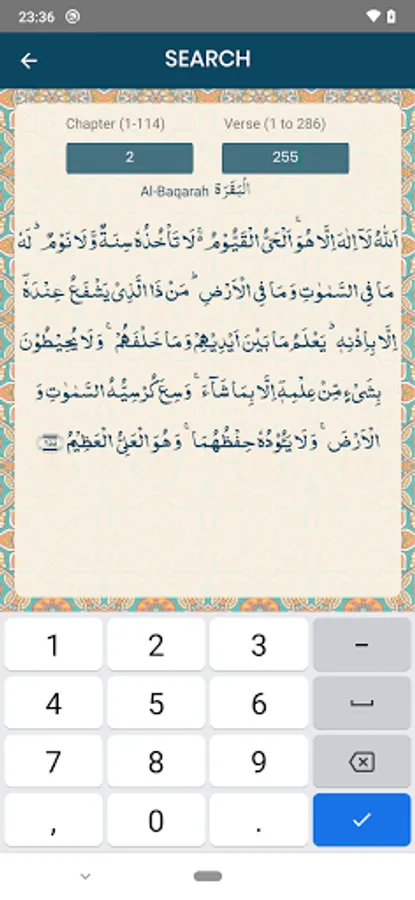 23:36
SEARCH
Chapter (1-114) Verse (1 to 286)
2 255
Al-Baqarah الْبَقَرَة
اَللّٰهُ لَاۤ اِلٰهَ اِلَّا هُوَ ۚ اَلْحَیُّ الْقَیُّوْمُ ۚ۬ لَا تَاْخُذُهٗ سِنَةٌ وَّلَا نَوْمٌ ؕ لَهٗ
مَا فِی السَّمٰوٰتِ وَمَا فِی الْاَرْضِ ؕ مَنْ ذَا الَّذِیْ یَشْفَعُ عِنْدَهٗۤ
اِلَّا بِاِذْنِهٖ ؕ یَعْلَمُ مَا بَیْنَ اَیْدِیْهِمْ وَمَا خَلْفَهُمْ ۚ وَلَا یُحِیْطُوْنَ
بِشَیْءٍ مِّنْ عِلْمِهٖۤ اِلَّا بِمَا شَآءَ ۚ وَسِعَ كُرْسِیُّهُ السَّمٰوٰتِ وَ
الْاَرْضَ ۚ وَلَا یَـُٔوْدُهٗ حِفْظُهُمَا ۚ وَهُوَ الْعَلِیُّ الْعَظِیْمُ ۝۲۵۵
1 2 3 –
4 5 6
7 8 9
, 0 .